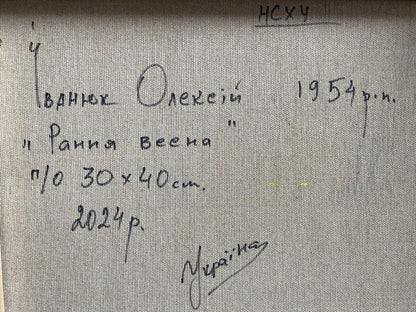 НСХУ
Іванюк Олексій 1954 р.н.
„ Рання весна "
п/о 30×40 см.
2024 р.
Україна